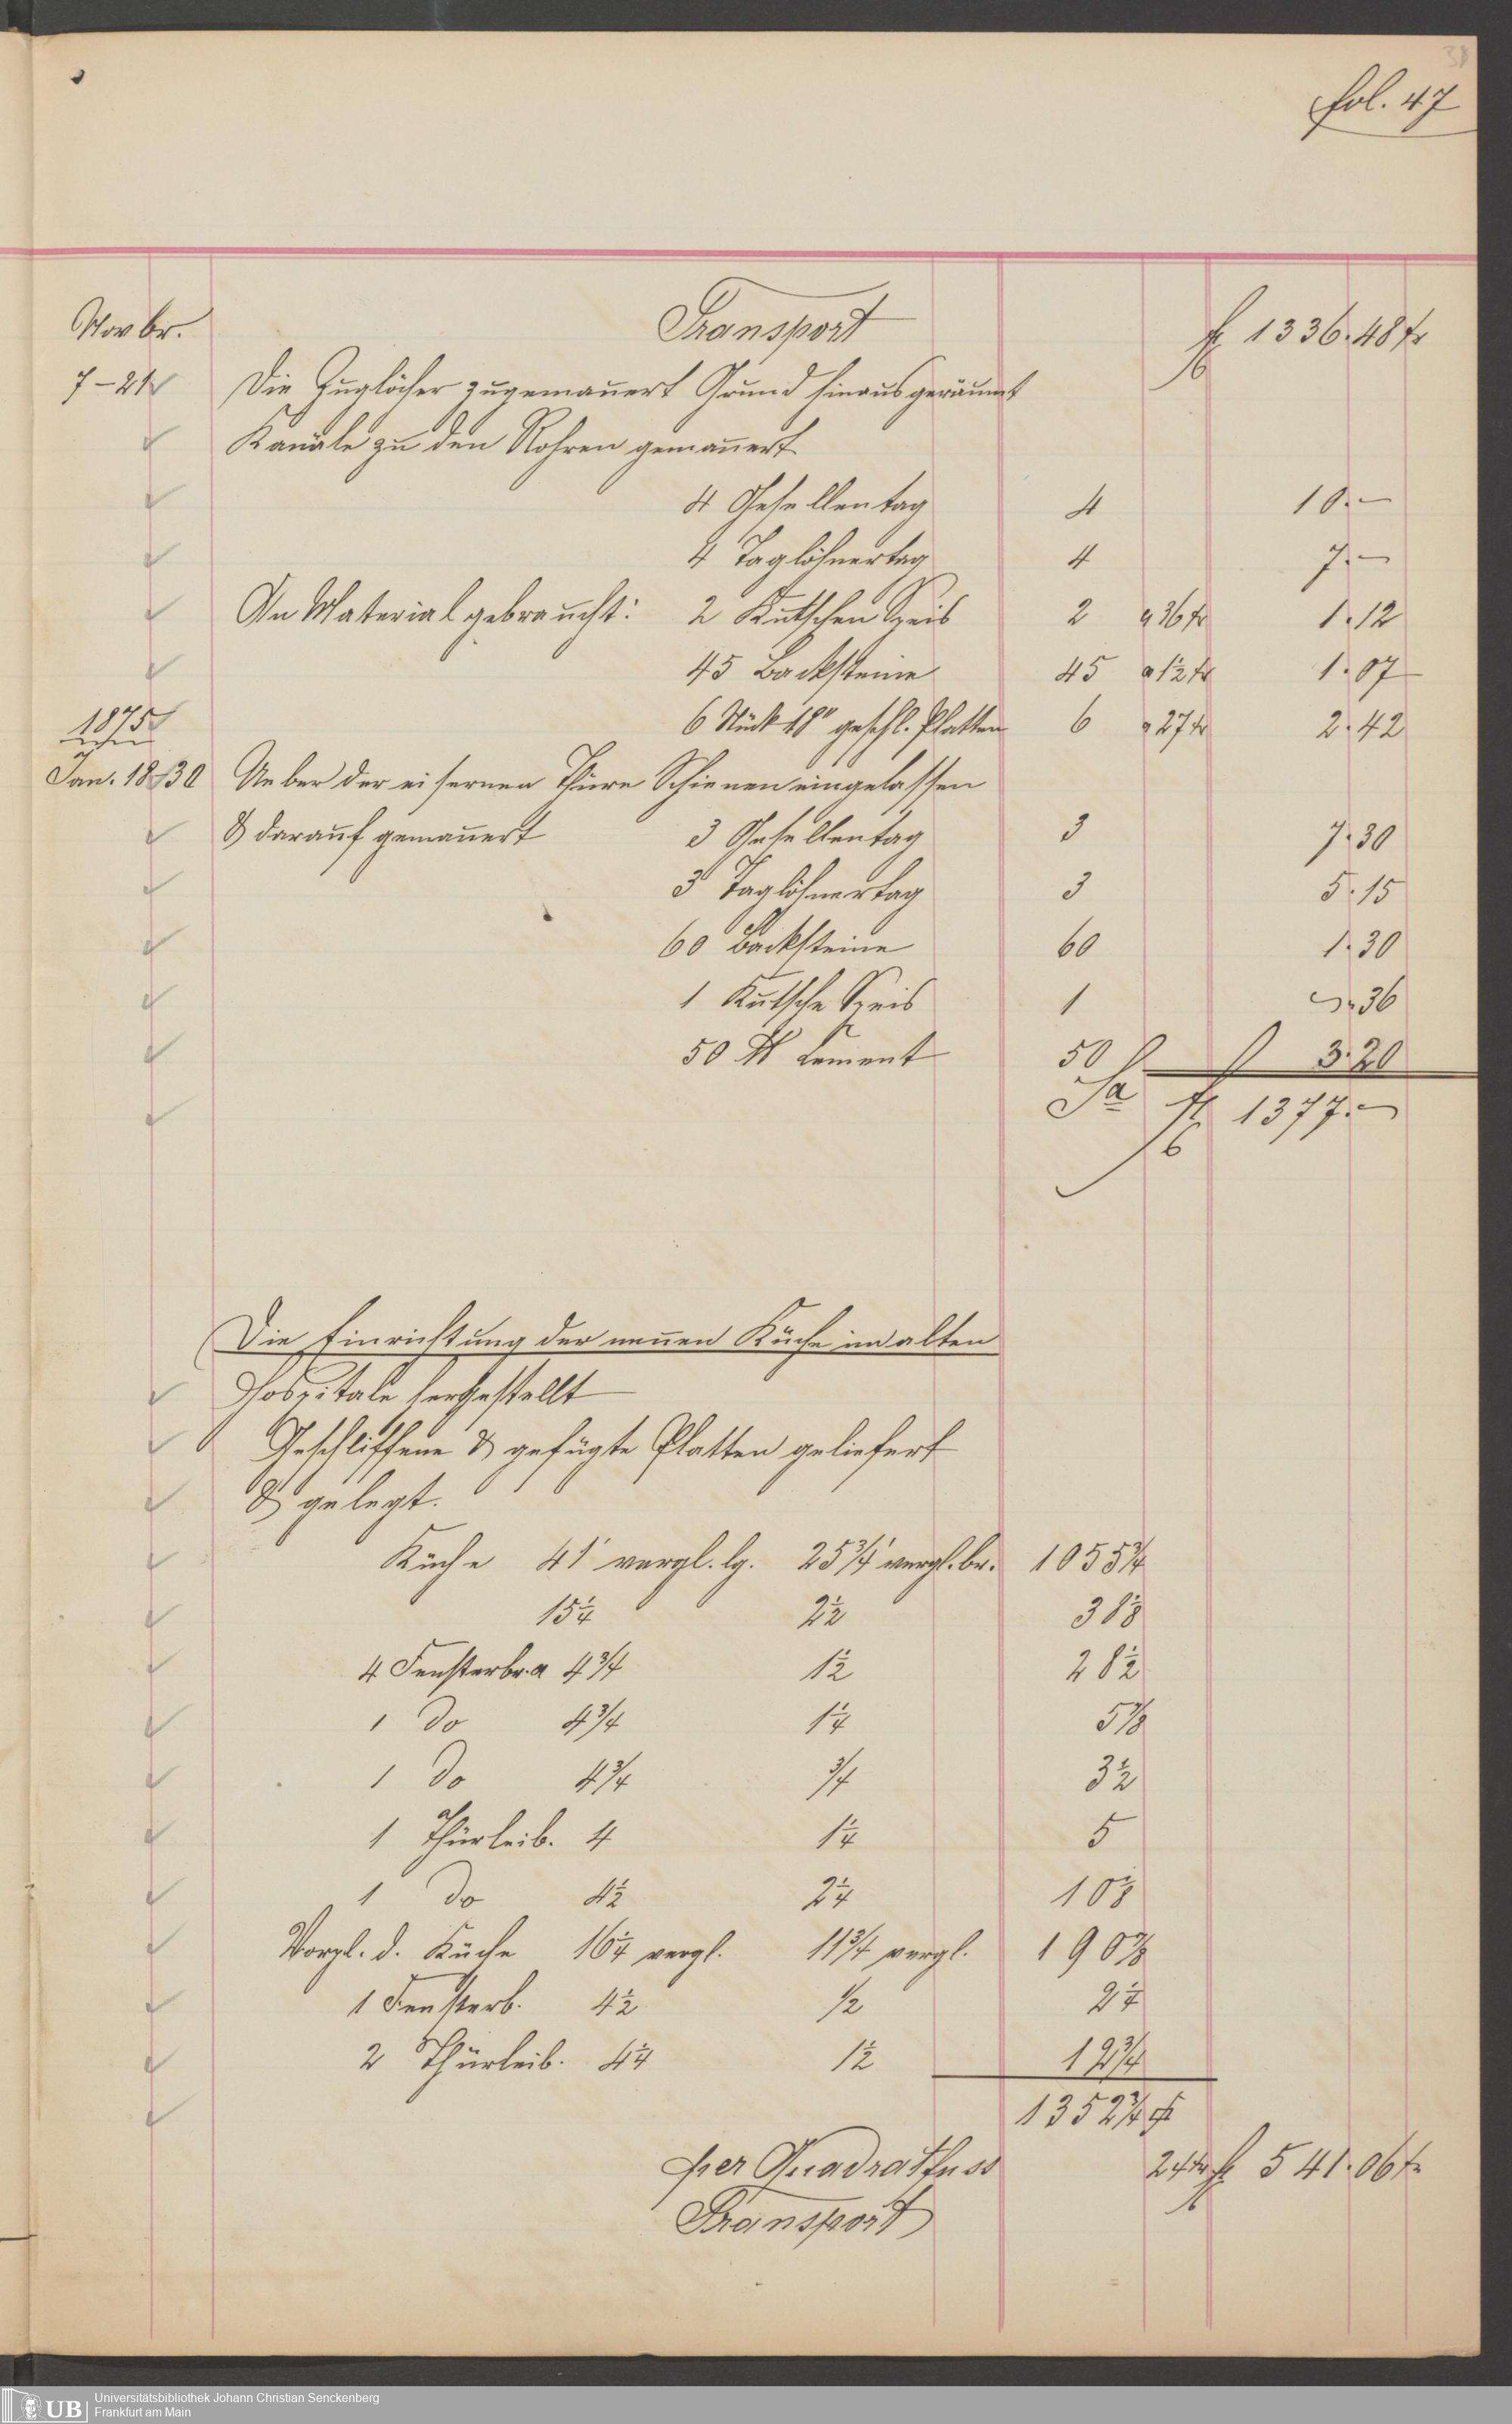 38
fol. 47
Novbr. Transport fl 1336.48 kr
7–21 Die Zuglöcher zugemauert Grund hinausgeräumt
Kanäle zu den Rohren gemauert
4 Gesellentag 4 10.–
4 Taglöhnertag 4 7.–
An Material gebraucht: 2 Kutschen Speis 2 a 36 kr 1.12
45 Backsteine 45 a 1½ kr 1.07
1875 6 Stück 18" geschl. Platten 6 a 27 kr 2.42
Jan. 18/30 Ueber der eisernen Thüre Schienen eingelassen
& darauf gemauert 3 Gesellentag 3 7.30
3 Taglöhnertag 3 5.15
60 Backsteine 60 1.30
1 Kutsche Speis 1 –.36
50 ℔ Cement 50 3.20
Sa fl 1377.–
Die Einrichtung der neuen Küche im alten
Hospitale hergestellt
Geschliffene & gefügte Platten geliefert
& gelegt.
Küche 41' vergl. lg. 25¾' vergl. br. 1055¾
15¼ 2½ 38⅛
4 Fensterbr. a 4¾ 1½ 28½
1 do 4¾ 1¼ 5⅞
1 do 4¾ ¾ 3½
1 Thürleib. 4 1¼ 5
1 do 4½ 2¼ 10⅛
Vorpl. d. Küche 16¼ vergl. 11¾ vergl. 190⅞
1 Fensterb. 4½ ½ 2¼
2 Thürleib. 4¼ 1½ 12¾
1352¾
per Quadratfuss 24 kr fl 541.06 kr
Transport
UB Universitätsbibliothek Johann Christian Senckenberg
Frankfurt am Main